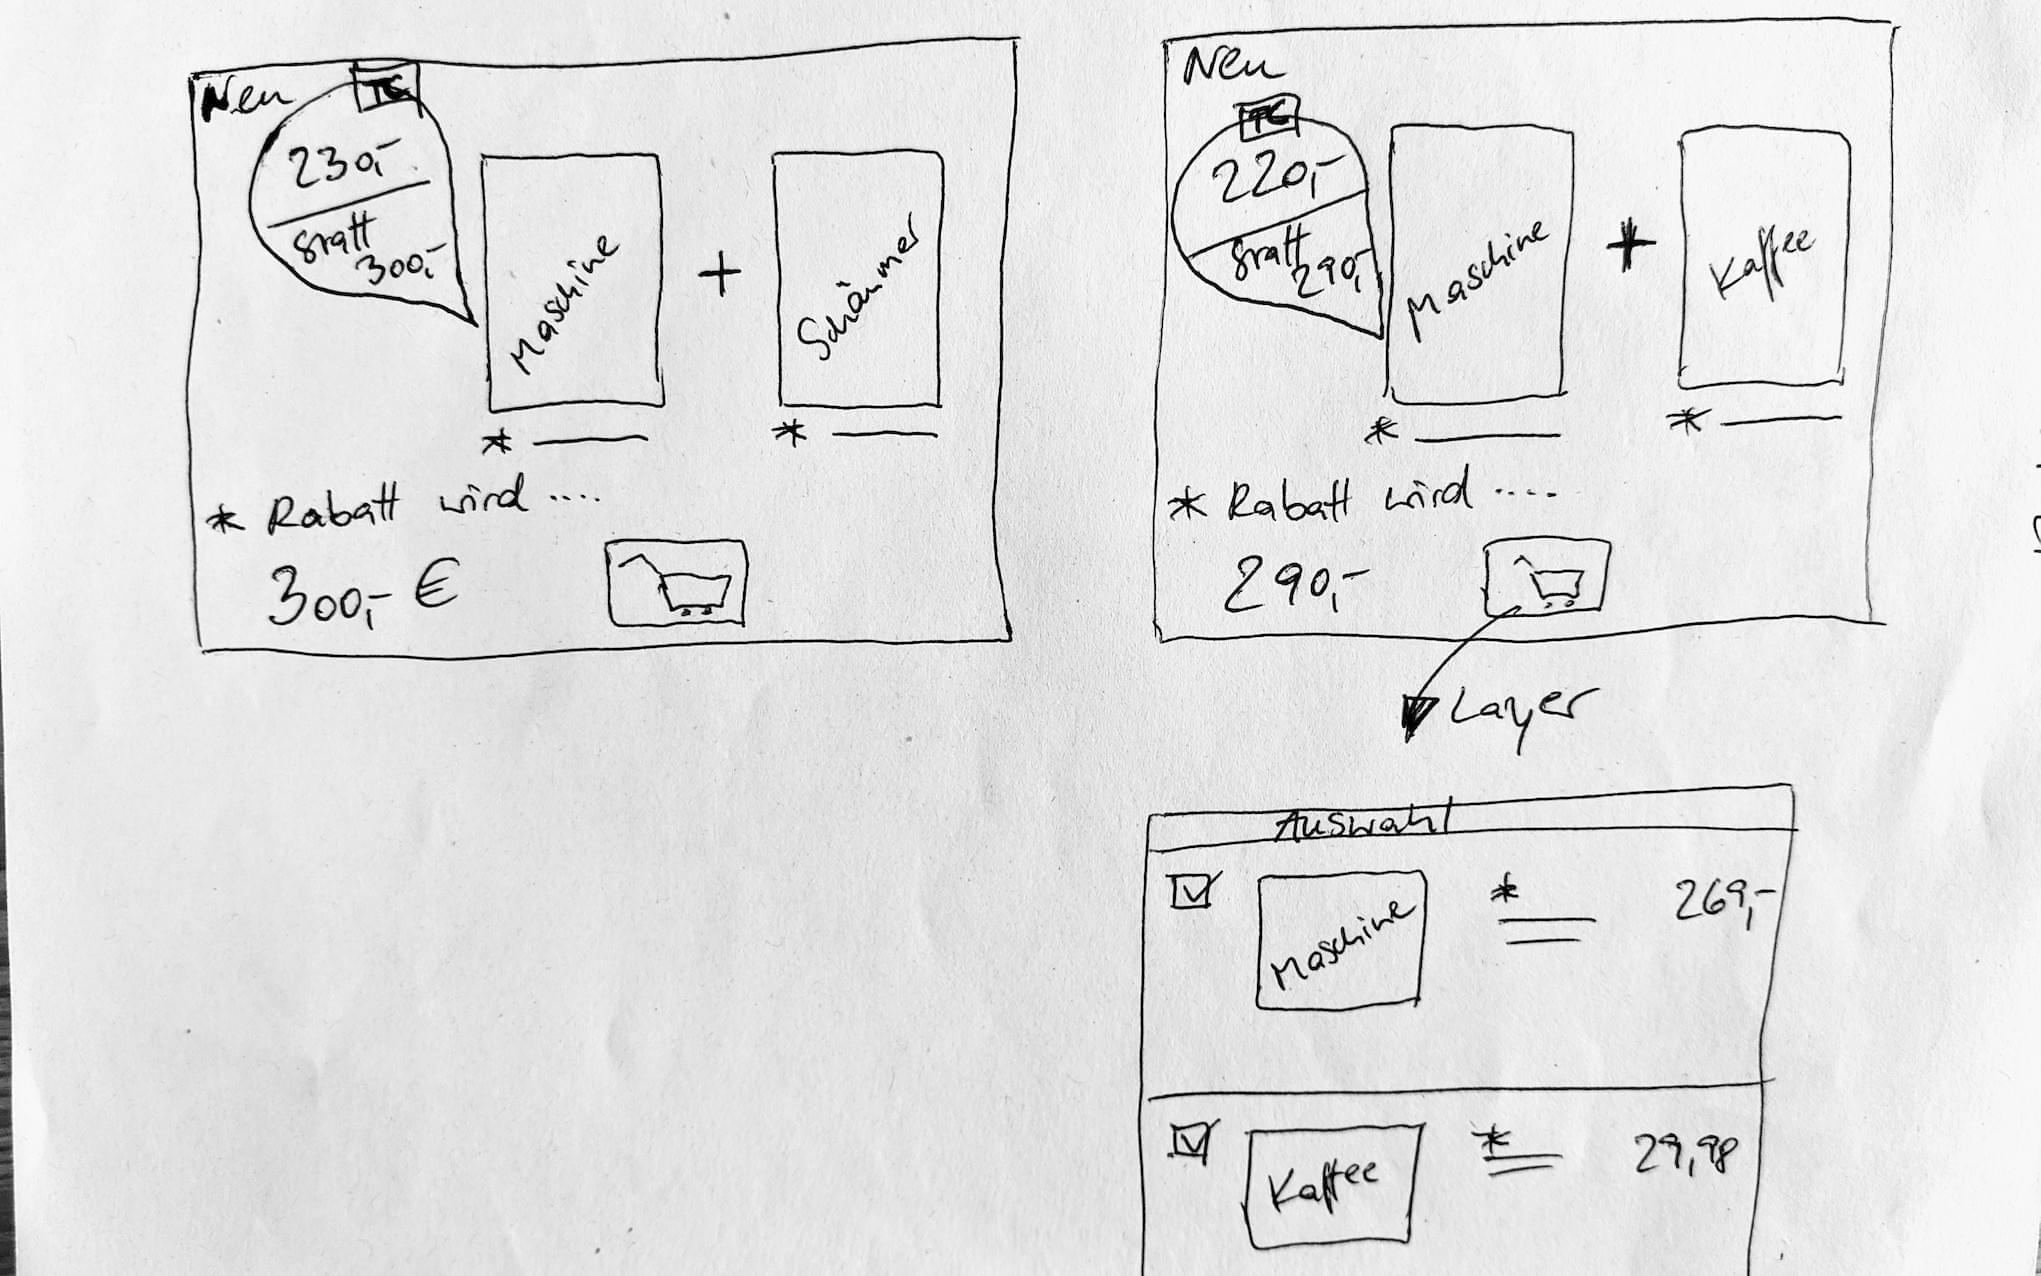 Neu
TC
230,-
statt
300,-
Maschine
+
Schäumer
*
*
* Rabatt wird ....
300,- €
Neu
TC
220,-
statt
290,-
Maschine
+
Kaffee
*
*
* Rabatt wird ....
290,-
Layer
Auswahl
Maschine
*
269,-
Kaffee
*
29,98